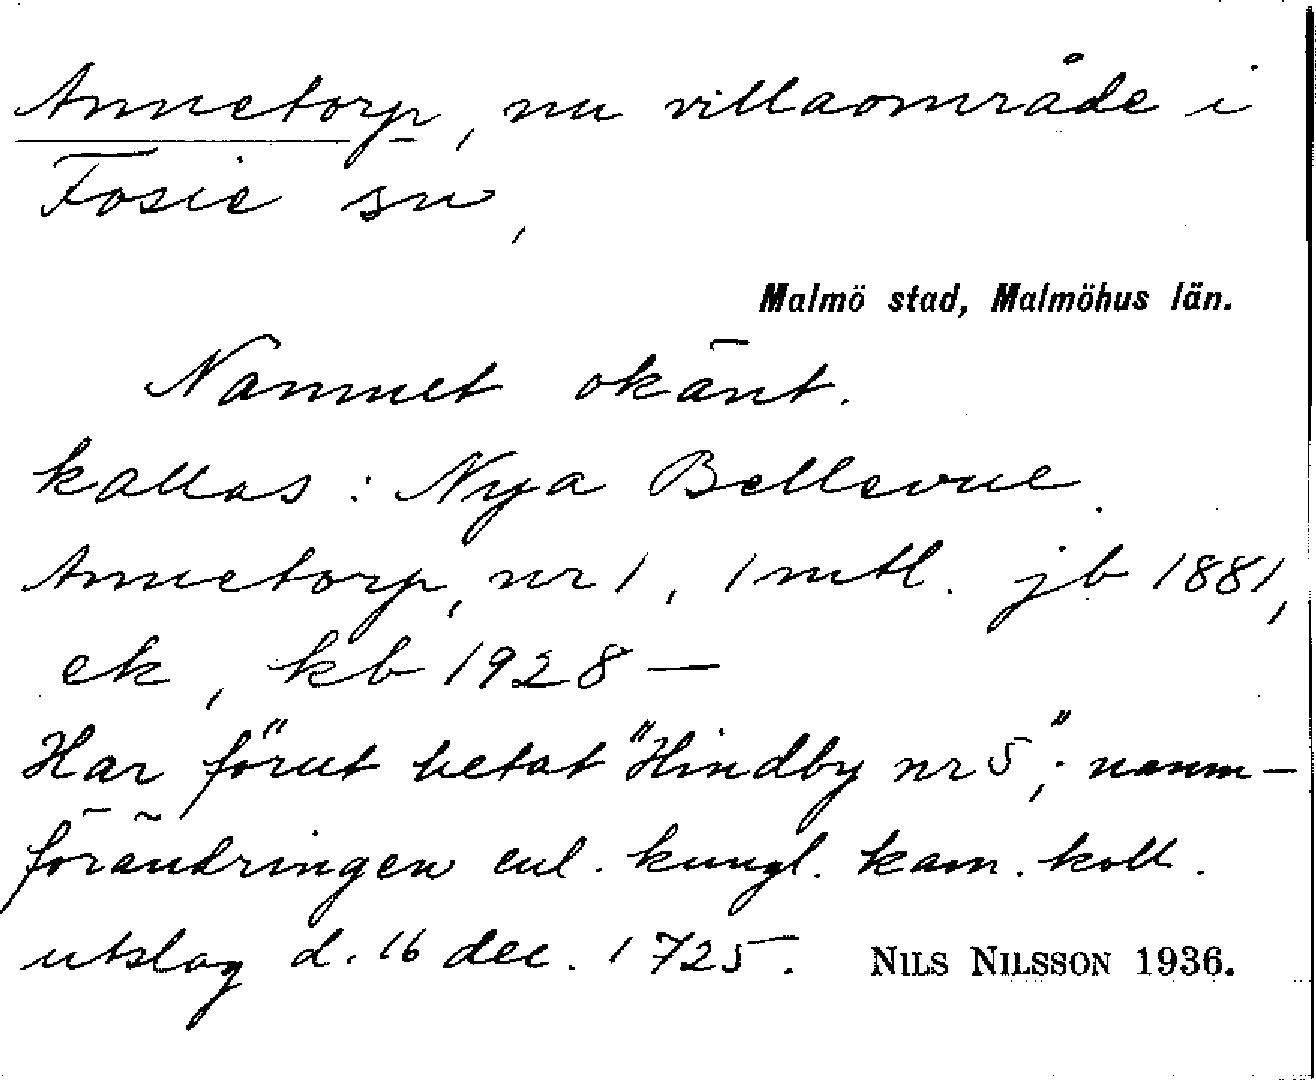 Annetorp, nu villaområde i
Fosie sn,
Malmö stad, Malmöhus län.
Namnet okänt.
kallas: Nya Bellevue.
Annetorp, nr 1, 1 mtl. jb 1881,
ek, kb 1928 —
Har förut hetat "Hindby nr 5"; namn-
förändringen enl. kungl. kam. koll.
utslag d. 16 dec. 1725. NILS NILSSON 1936.